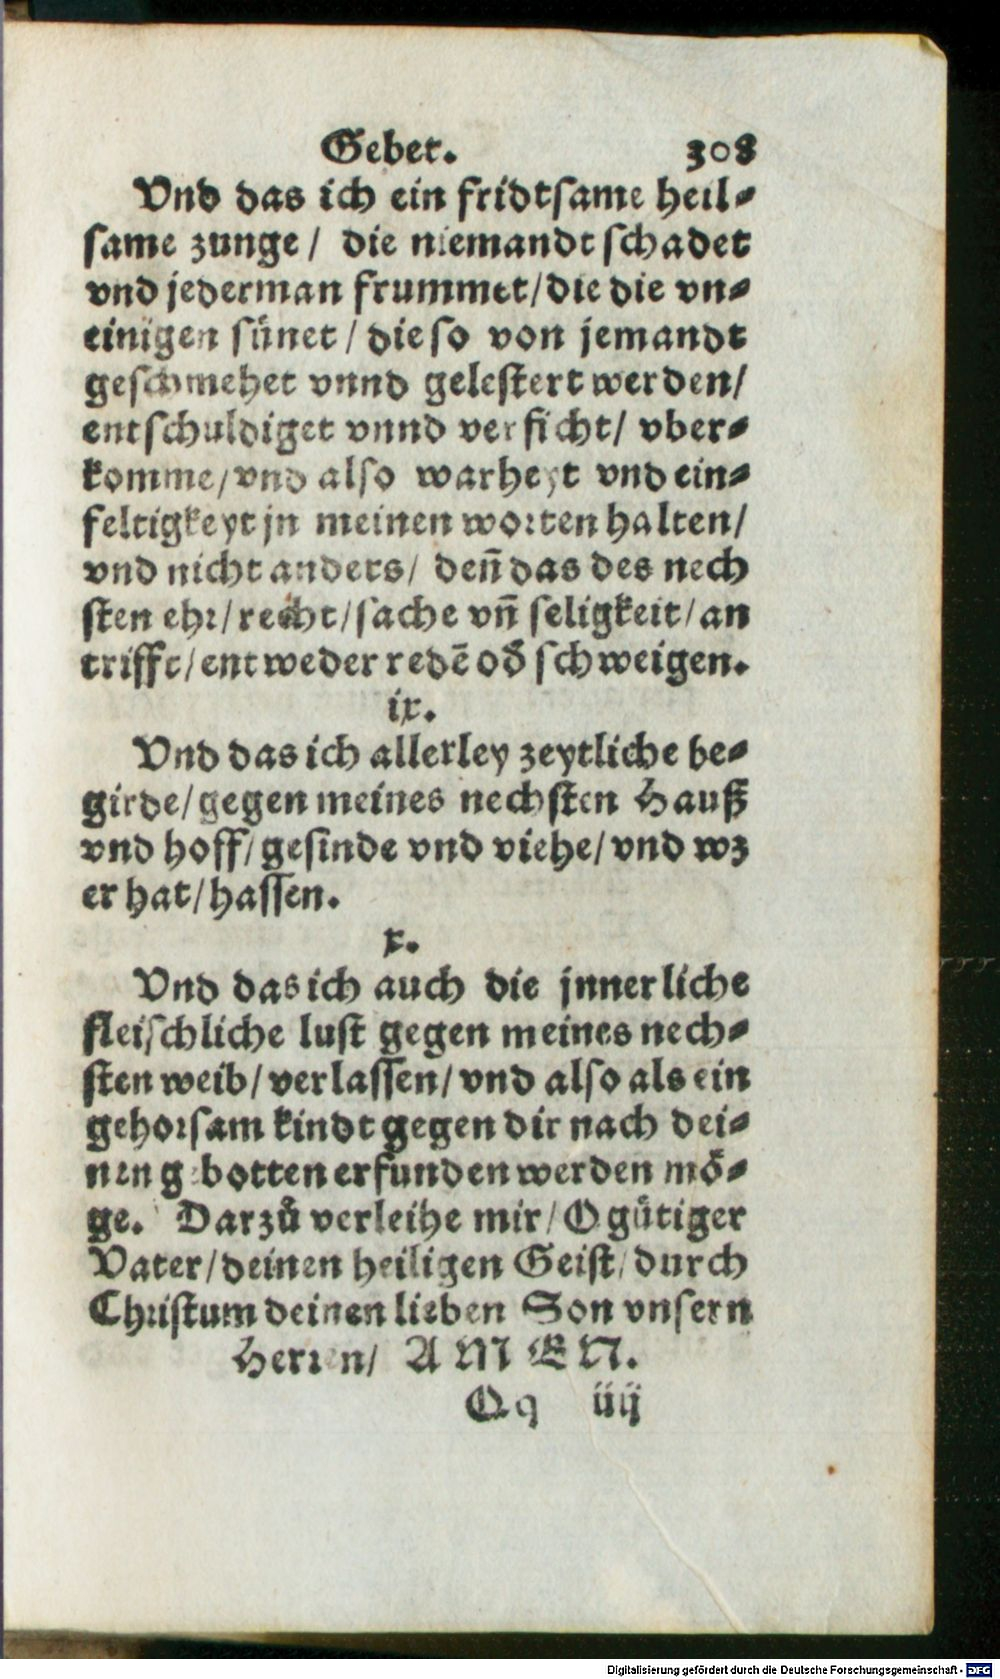 Gebet. 308
Vnd das ich ein fridtsame heil-
same zunge / die niemandt schadet
vnd jederman frummet / die die vn-
einigen sünet / die so von jemandt
geschmehet vnnd gelestert werden /
entschuldiget vnnd verficht / vber-
komme / vnd also warheyt vnd ein-
feltigkeyt jn meinen worten halten /
vnd nicht anders / deñ das des nech
sten ehr / recht / sache vñ seligkeit / an
trifft / entweder redē oď schweigen.
ix.
Vnd das ich allerley zeytliche be-
girde / gegen meines nechsten Hauß
vnd hoff / gesinde vnd viehe / vnd wz
er hat / hassen.
x.
Vnd das ich auch die jnnerliche
fleischliche lust gegen meines nech-
sten weib / verlassen / vnd also als ein
gehorsam kindt gegen dir nach dei-
nen gebotten erfunden werden mö-
ge. Darzů verleihe mir / O gütiger
Vater / deinen heiligen Geist / durch
Christum deinen lieben Son vnsern
Herren / AMEN.
Qq iiij
Digitalisierung gefördert durch die Deutsche Forschungsgemeinschaft - DFG